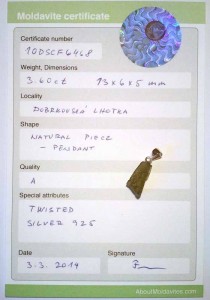 Moldavite certificate
Certificate number
10DSCF6468
Weight, Dimensions
3.60ct 13x6x5 mm
Locality
DOBRKOVSKÁ LHOTKA
Shape
NATURAL PIECE
- PENDANT
Quality
A
Special attributes
TWISTED
SILVER 925
Date
Signature
3.3.2014
AboutMoldavites.com